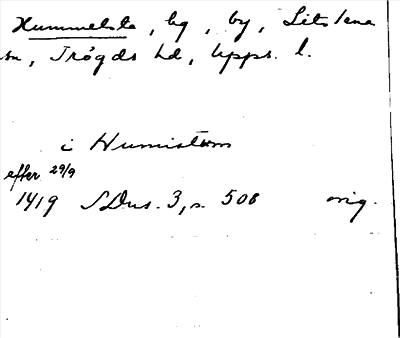 Hummelsta, hg, by, Litslena
sn, Trögds hd, Upps. l.
i Humistum
efter 29/9
1419 SDns. 3, s. 508 orig.